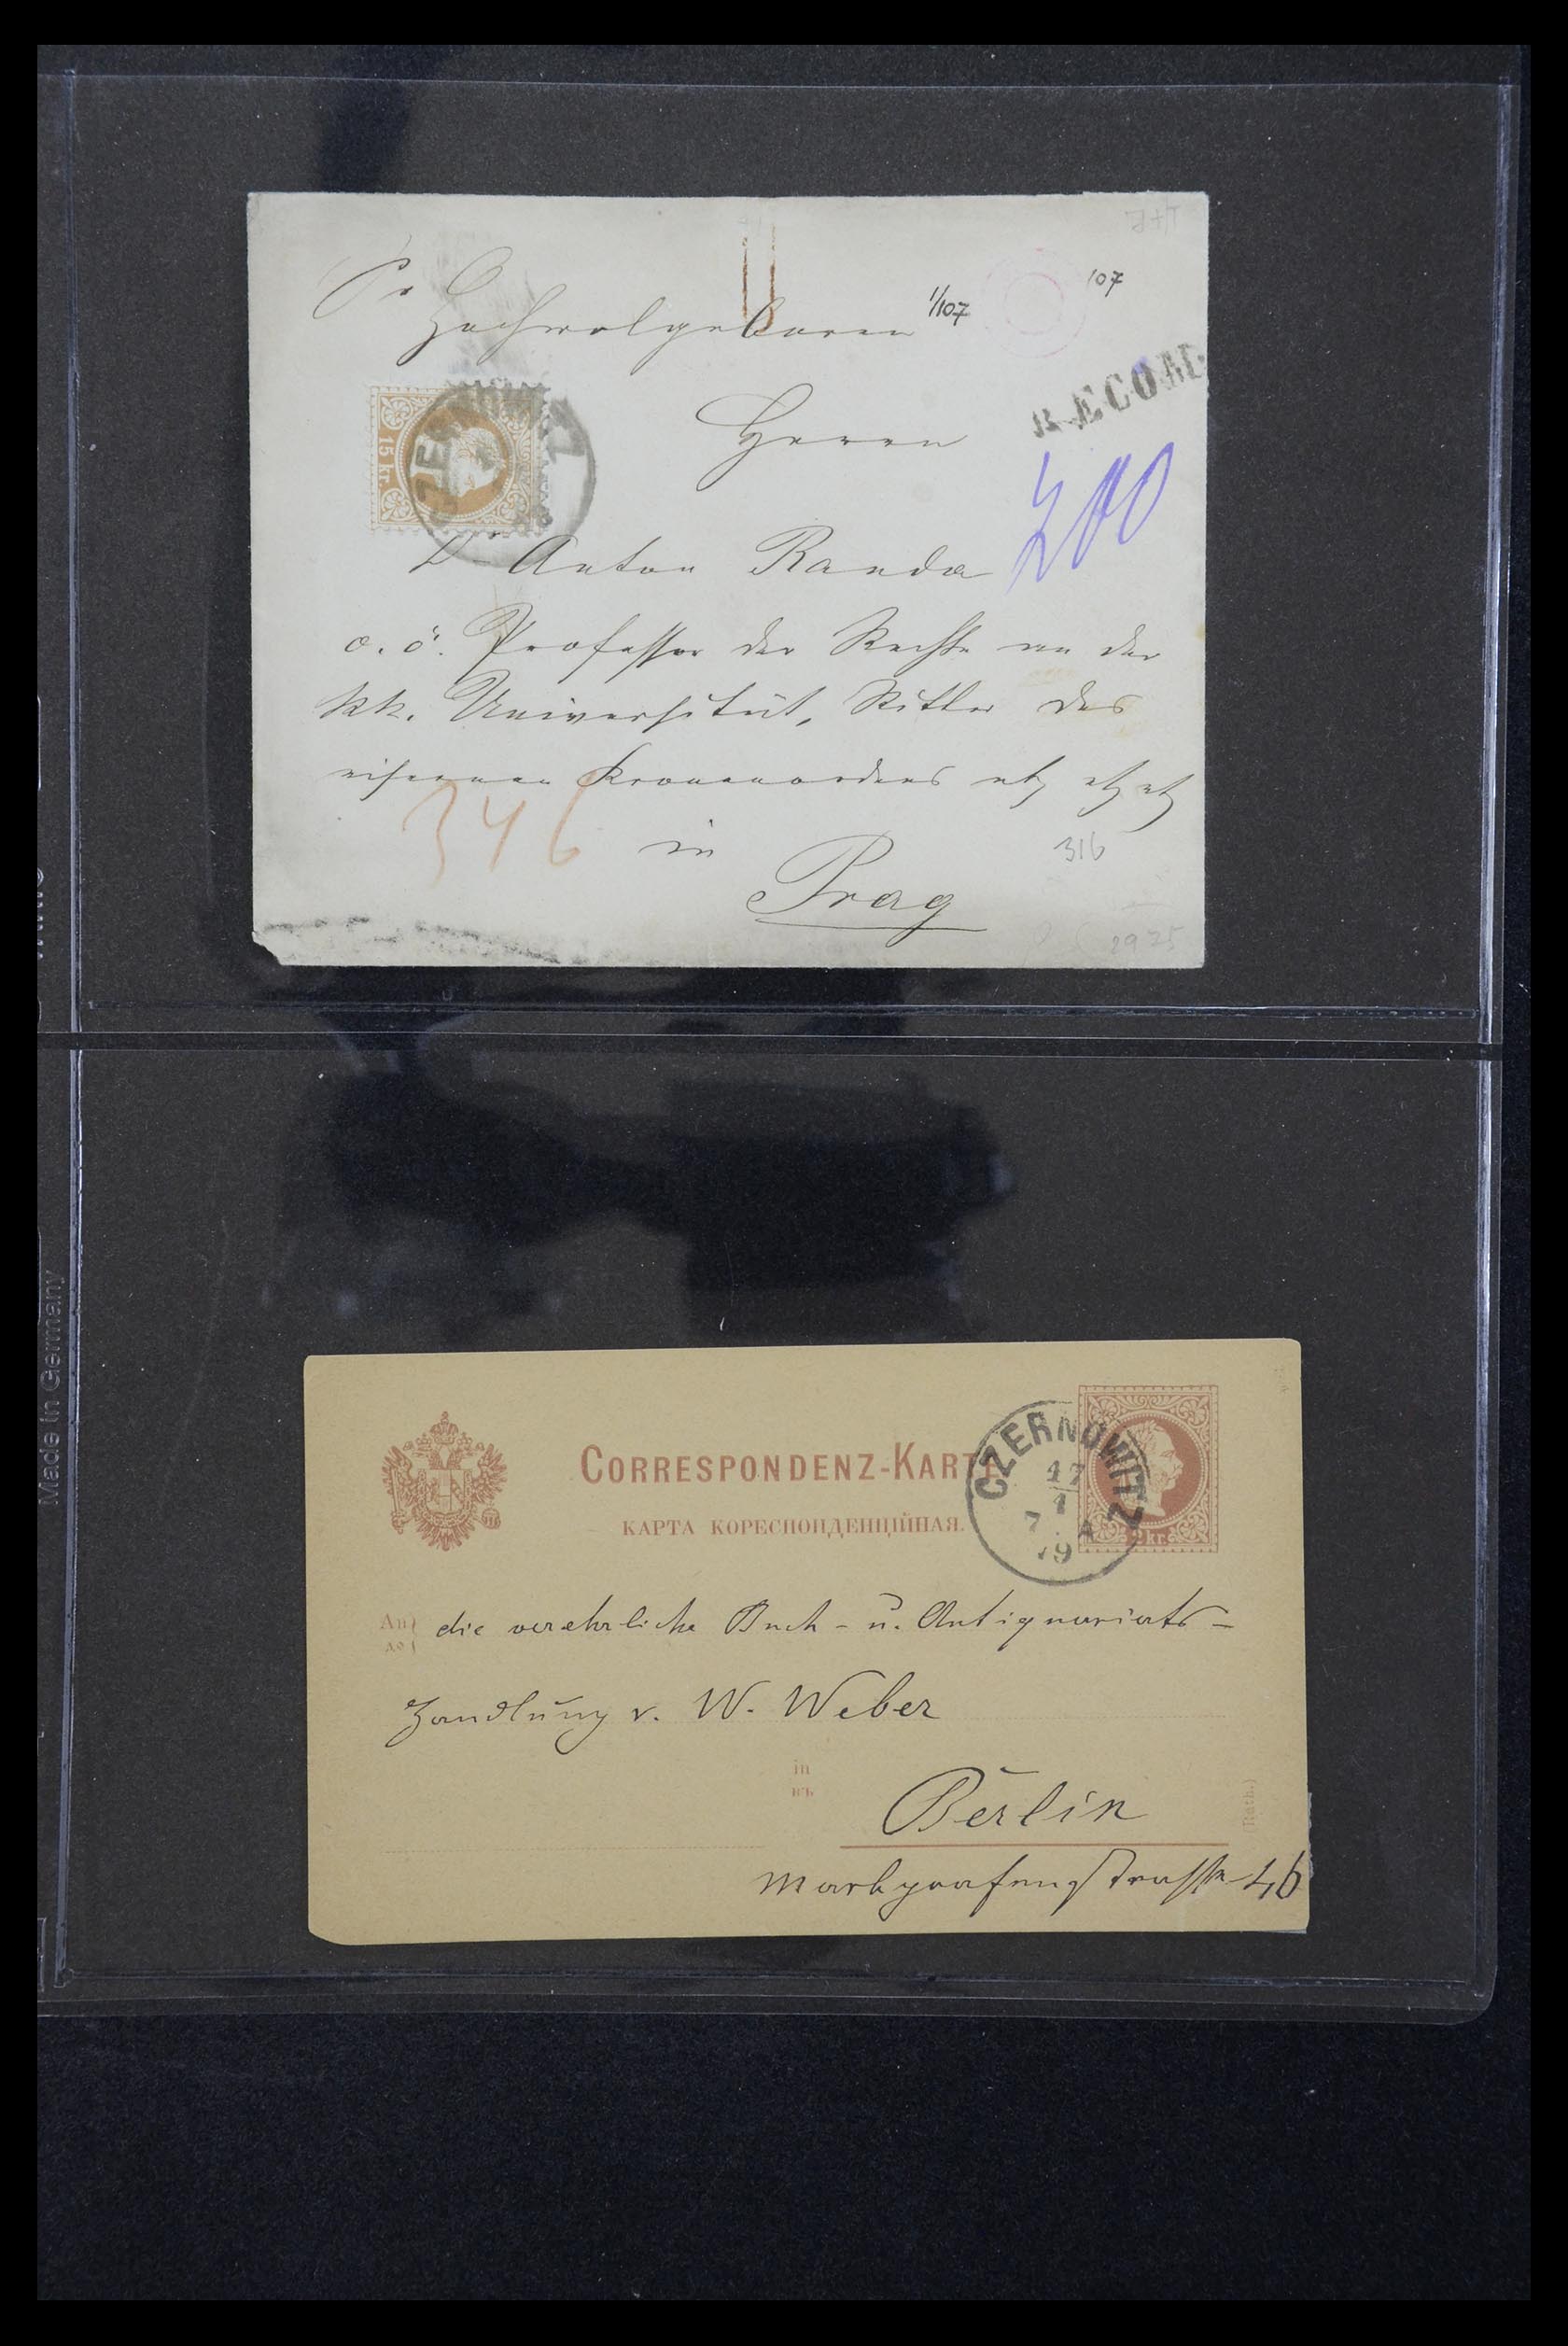 Sr
Hochwolgeboren
1/107
107
RECOM
Herrn
15 kr.
CZERNOWITZ
Dr Anton Randa
o. ö. Professor der Rechte an der
kk. Universität, Ritter des
eisernen Kronenordens etz etz etz
346
in
316
Prag
2925
Made in Germany
CORRESPONDENZ-KARTE
КАРТА КОРЕСПОНДЕНЦІЙНАЯ.
CZERNOWITZ
17
1
7. A
79
2 kr.
An
до
die verehrliche Buch- u. Antiquariats-
handlung v. W. Weber
in
въ
Berlin
(Ruth.)
Markgrafenstrasse 46